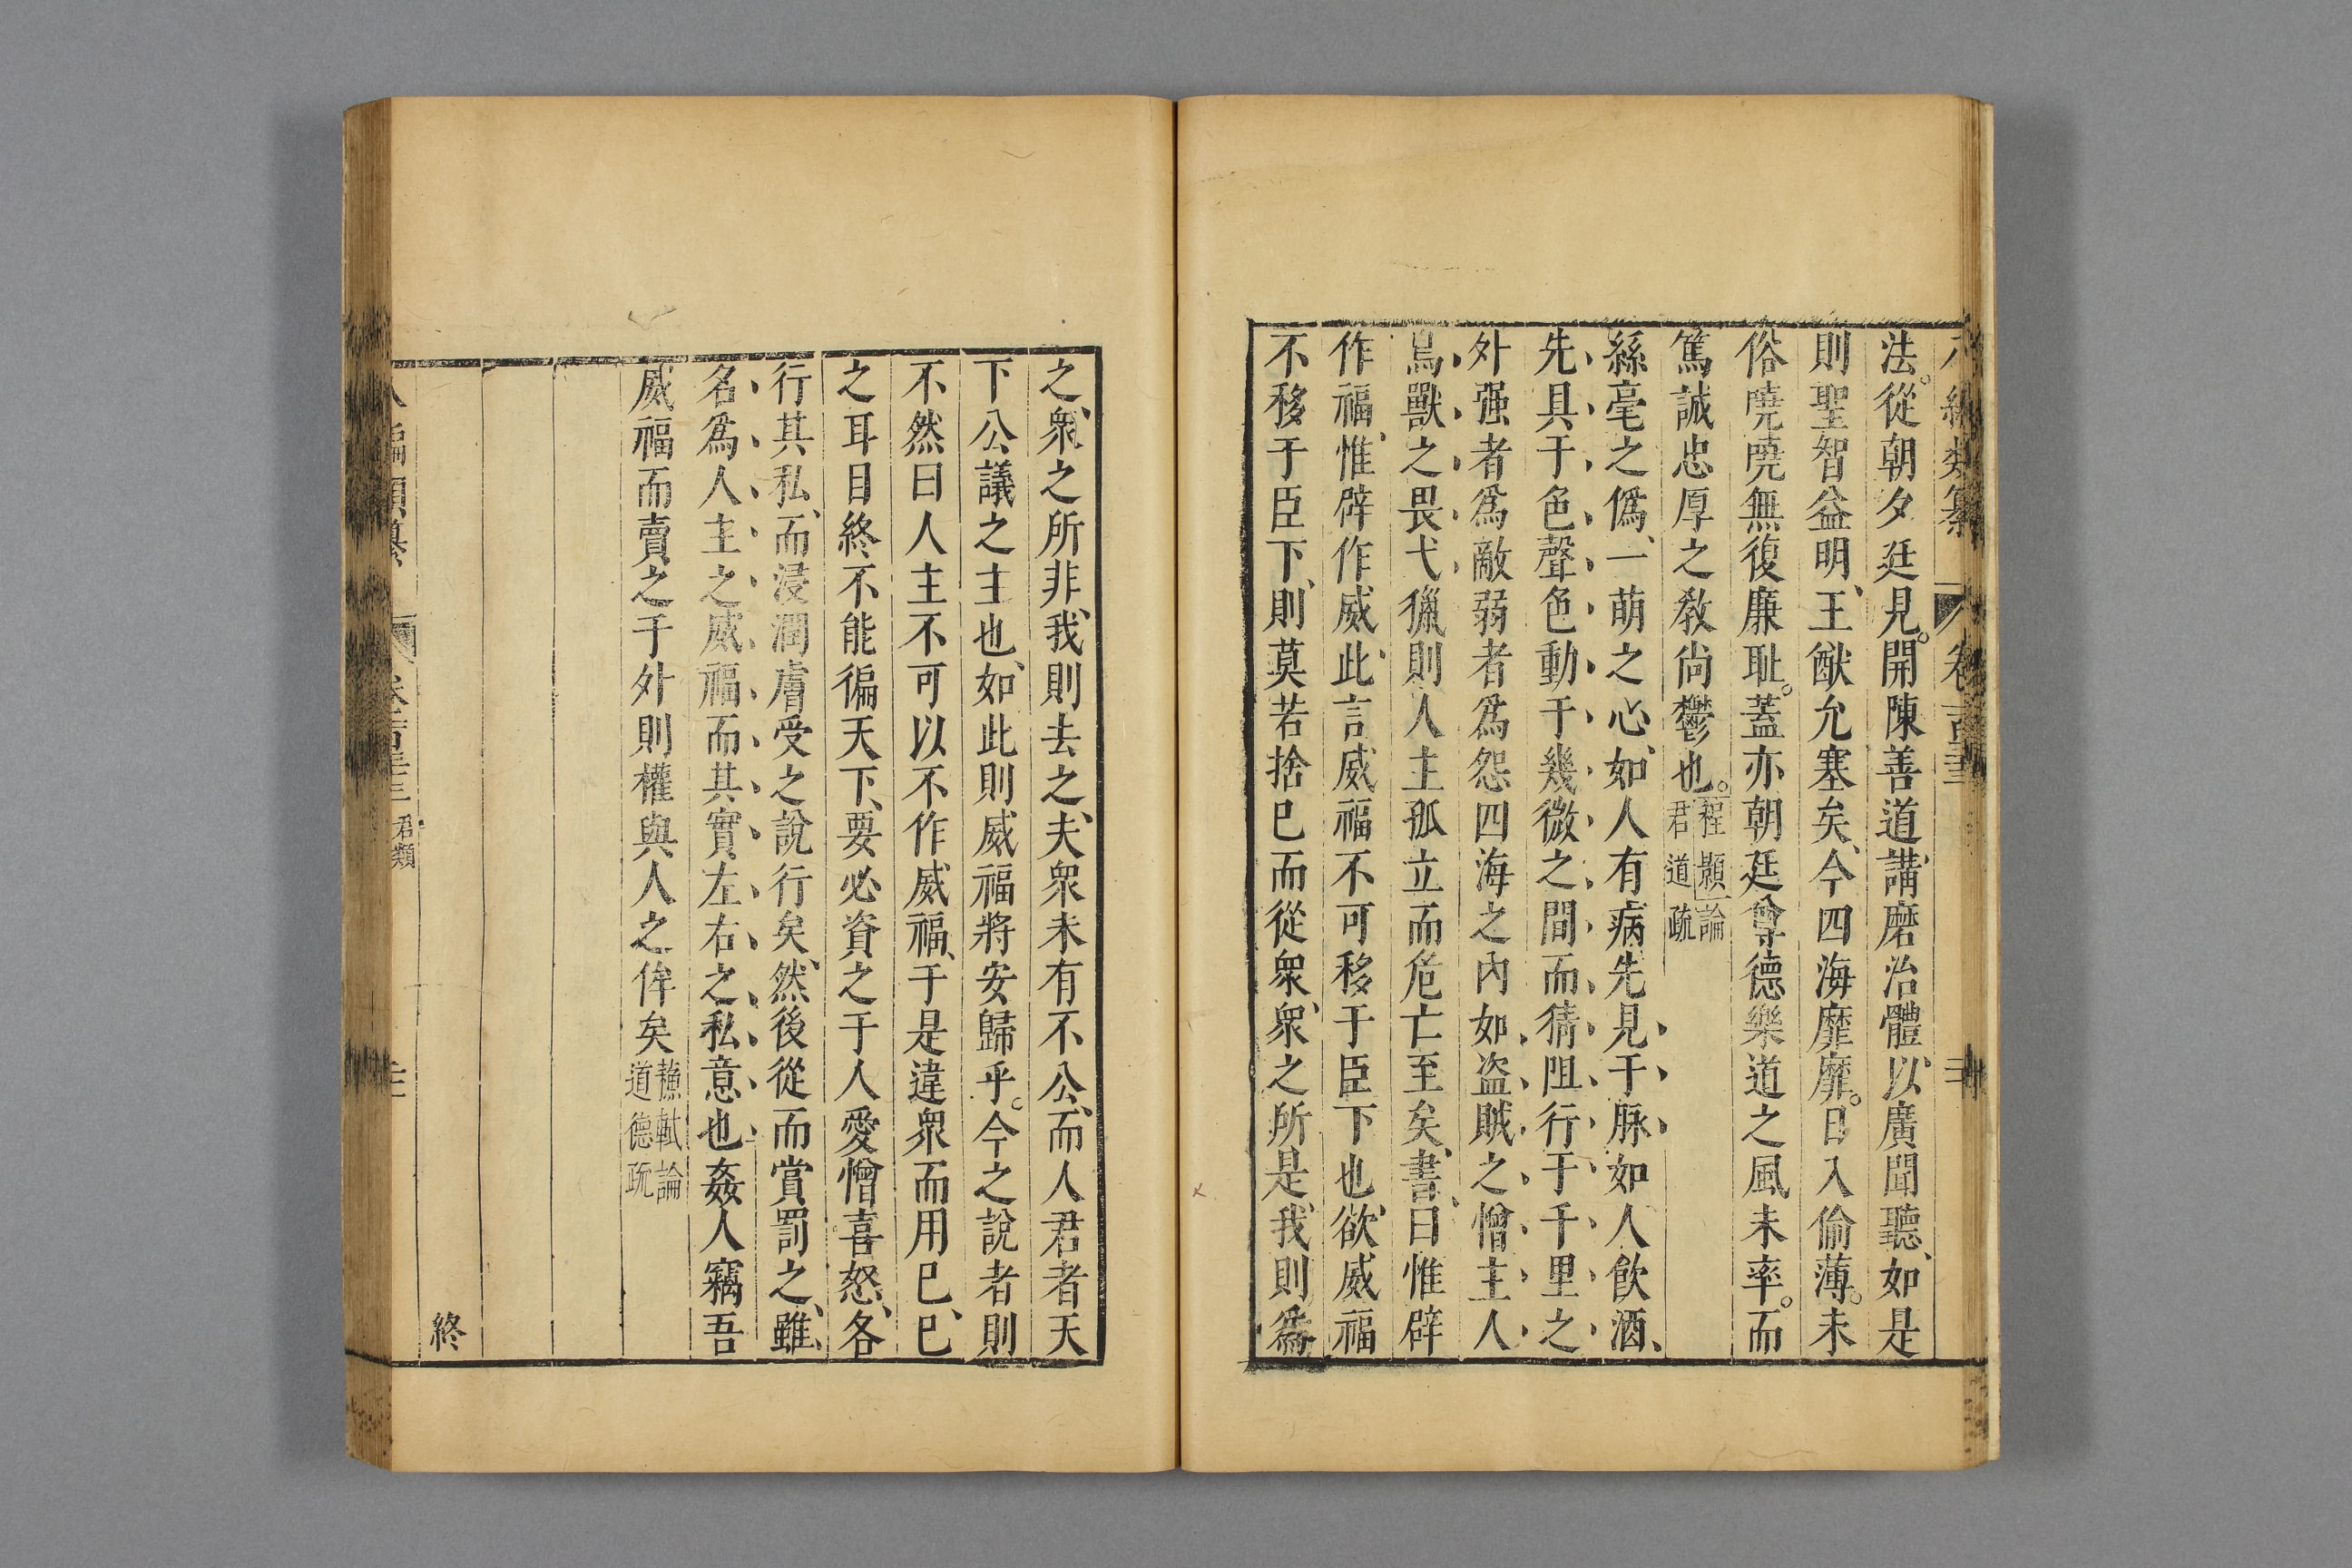 法。從朝夕廷見。開陳善道、講磨治體、以廣聞聽、如是
則聖智益明、王猷允塞矣、今四海靡靡。日入偷薄。未
俗嘵嘵無復廉耻。蓋亦朝廷尊德樂道之風未率。而
篤誠忠厚之教尚鬱也。程顥論
君道疏
絲毫之僞、一萌之心、如人有病先見于脉如人飲酒、
先具于色聲色動于幾微之間而猜阻行于千里之
外强者爲敵弱者爲怨四海之内如盗賊之憎主人
鳥獸之畏弋獵則人主孤立而危亡至矣、書、曰惟辟
作福、惟辟作威、此言威福不可移于臣下也、欲威福
不移于臣下、則莫若捨已而從衆、衆之所是、我則爲
之、衆之所非、我則去之、夫衆未有不公、而人君者天
下公議之主也、如此則威福將安歸乎。今之說者則
不然曰人主不可以不作威福、于是違衆而用已、已
之耳目終不能徧天下、要必資之于人愛憎喜怒、各
行其私、而浸潤膚受之說行矣、然後從而賞罰之、雖
名爲人主之威福而其實左右之私意也姦人竊吾
威福而賣之于外則權與人之侔矣蘇軾論
道德疏
終
八編類纂
卷
君類